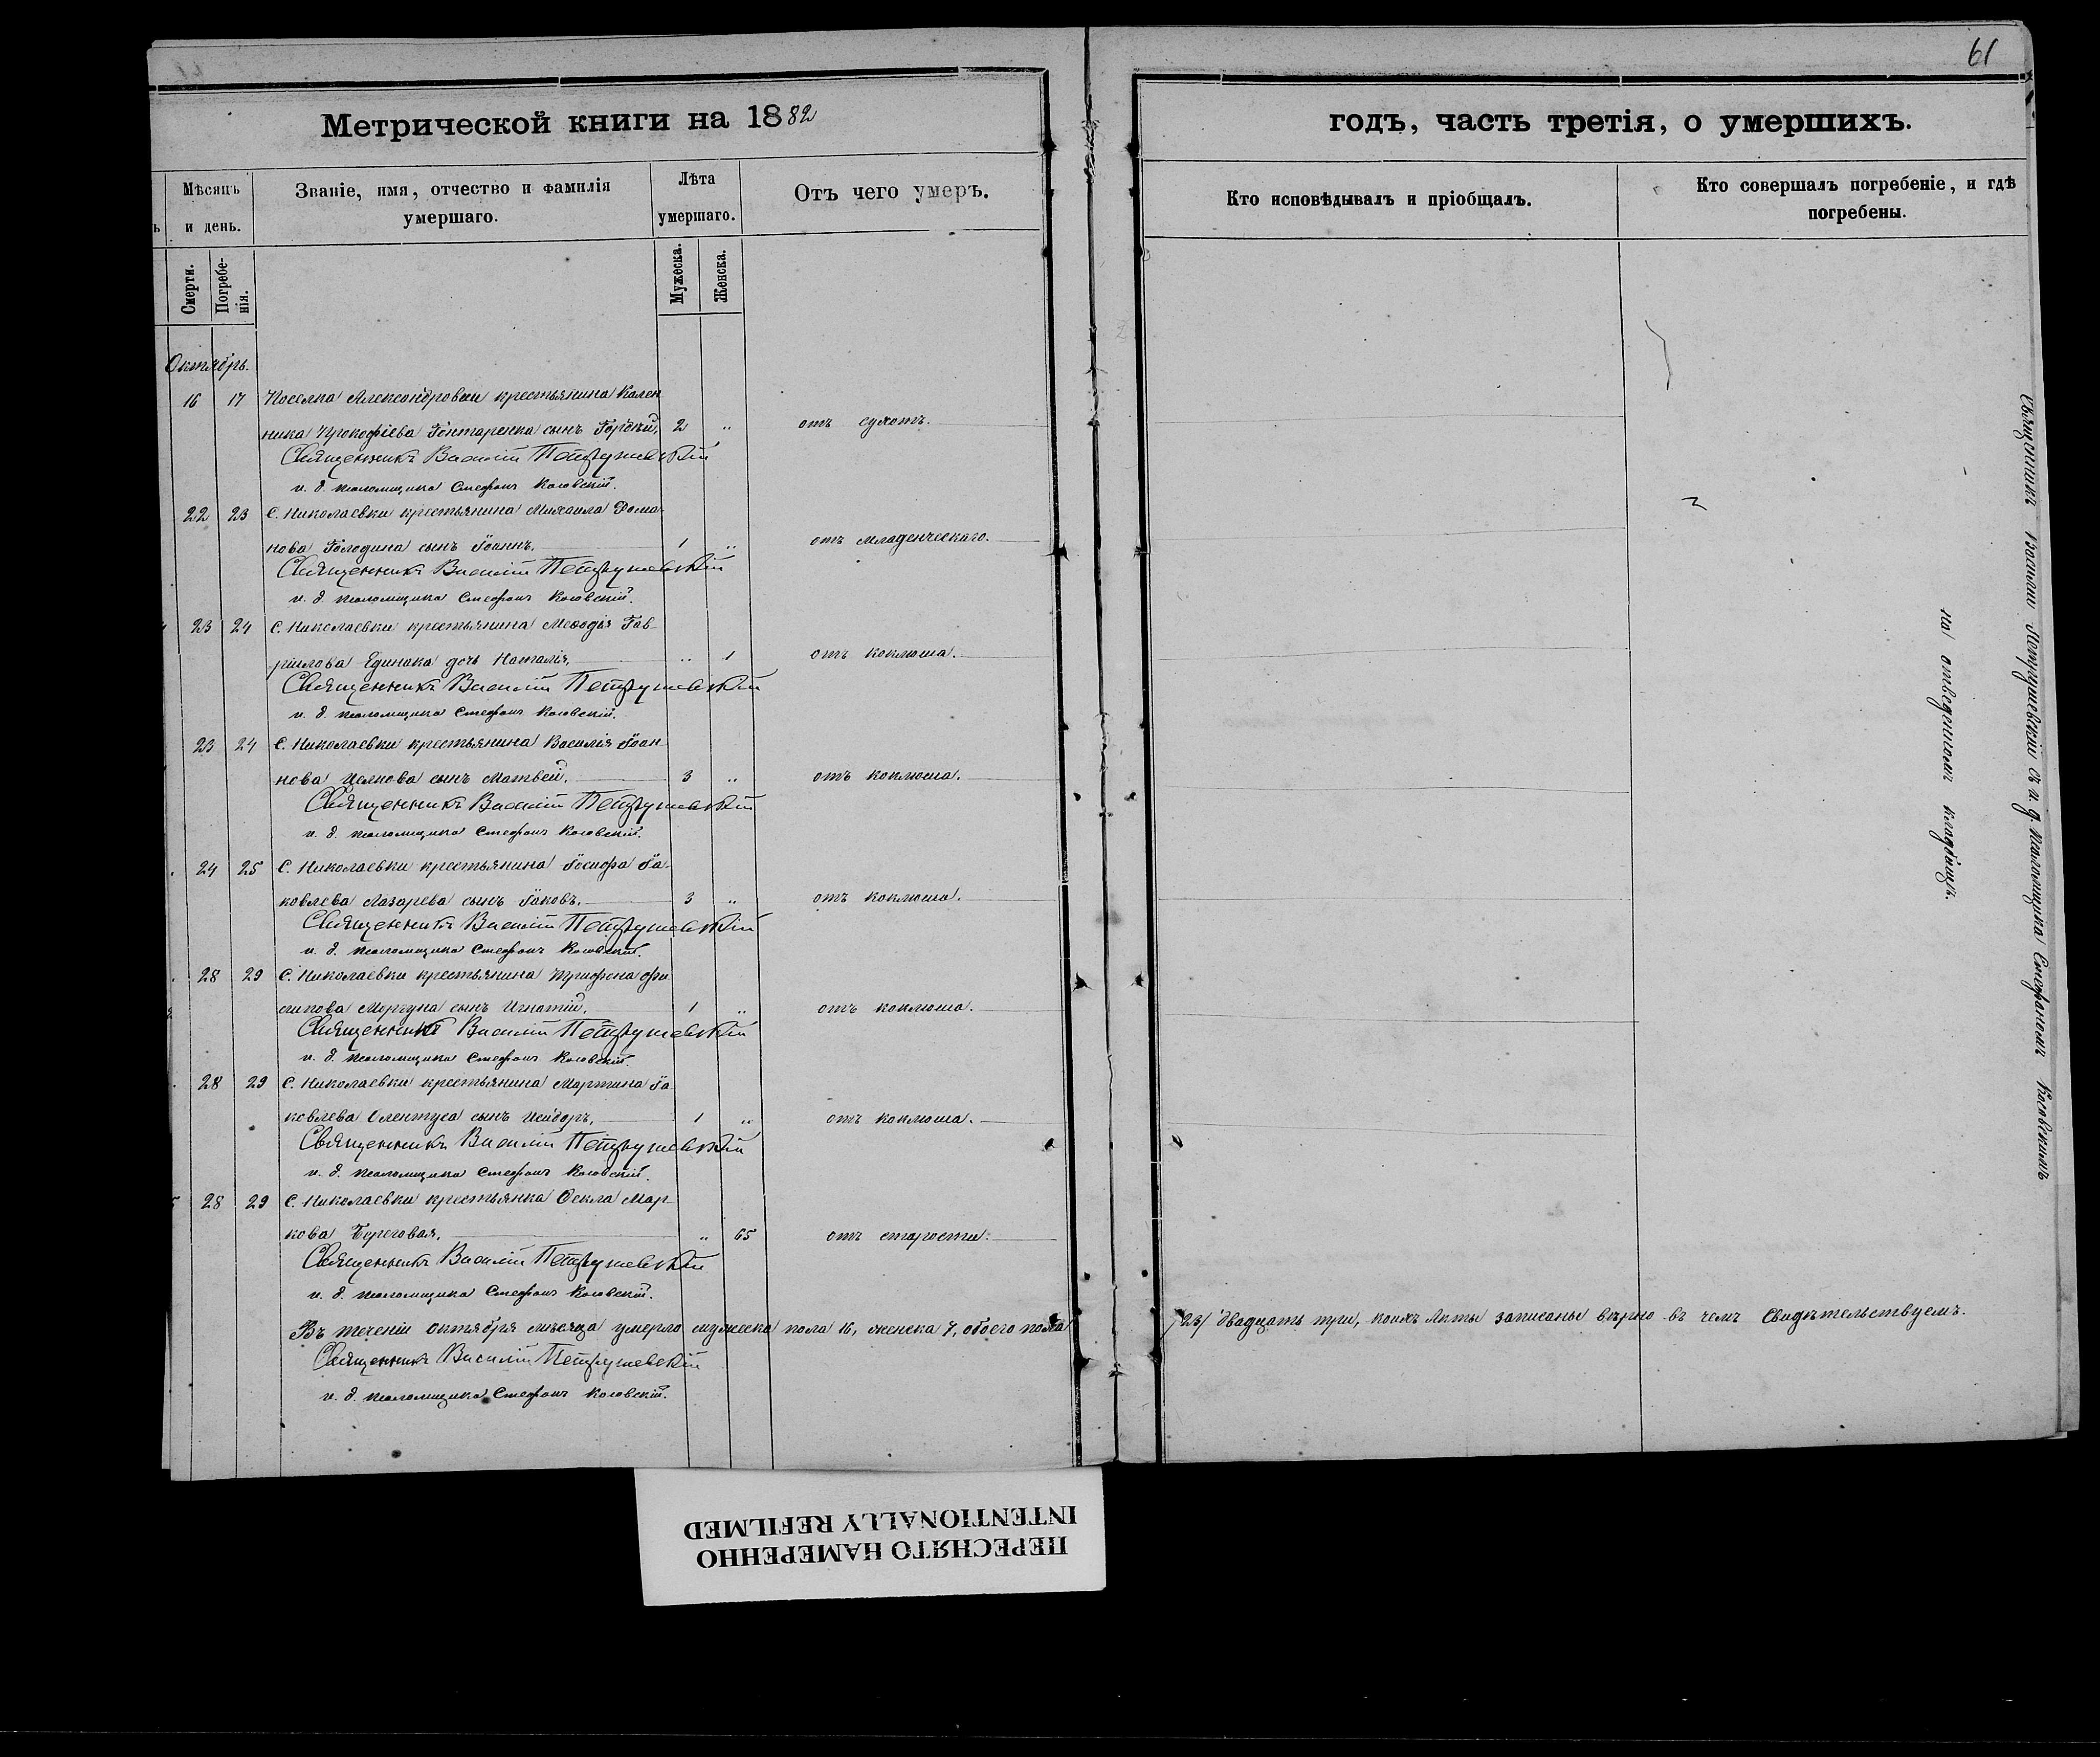 61
Метрической книги на 1882
годъ, часть третія, о умершихъ.
Мѣсяцъ и день.
Званіе, имя, отчество и фамилія умершаго.
Лѣта умершаго.
Отъ чего умеръ.
Кто исповѣдывалъ и пріобщалъ.
Кто совершалъ погребеніе, и гдѣ погребены.
Смерти.
Погребе-
нія.
Мужеска.
Женска.
Октябрь.
16 17 Поселка Александровки крестьянина Кален
ника Прокофіева Гонтаренка сынъ Гордѣй, 2 „ отъ сухотъ.
Священникъ Василій Петрушевскій
и. д. псаломщика Стефанъ Косовскій.
22 23 С. Николаевки крестьянина Михаила Рома-
нова Голодина сынъ Іоаннъ, 1 „ отъ младенческаго.
Священникъ Василій Петрушевскій
и. д. псаломщика Стефанъ Косовскій.
23 24 С. Николаевки крестьянина Меѳодія Гав-
рилова Единака дочь Наталія, „ 1 отъ коклюша.
Священникъ Василій Петрушевскій
и. д. псаломщика Стефанъ Косовскій.
23 24 С. Николаевки крестьянина Василія Іоан
нова сынъ Матвей, 3 „ отъ коклюша.
Священникъ Василій Петрушевскій
и. д. псаломщика Стефанъ Косовскій.
24 25 С. Николаевки крестьянина Іосифа Іа-
ковлева Лазарева сынъ Іаковъ, 3 „ отъ коклюша.
Священникъ Василій Петрушевскій
и. д. псаломщика Стефанъ Косовскій.
28 29 С. Николаевки крестьянина Трифона Фи
липова Моргуна сынъ Игнатій, 1 „ отъ коклюша.
Священникъ Василій Петрушевскій
и. д. псаломщика Стефанъ Косовскій.
28 29 С. Николаевки крестьянина Мартина Іа
ковлева сынъ Исидоръ, 1 „ отъ коклюша.
Священникъ Василій Петрушевскій
и. д. псаломщика Стефанъ Косовскій.
28 29 С. Николаевки крестьянка Ѳекла Мар-
кова Береговая, „ 65 отъ старости.
Священникъ Василій Петрушевскій
и. д. псаломщика Стефанъ Косовскій.
Въ теченіи октября мѣсяца умерло мужеска пола 16, женска 7, обоего пола /23/ двадцать три, коихъ Акты записаны вѣрно въ чемъ Свидѣтельствуемъ.
Священникъ Василій Петрушевскій
и. д. псаломщика Стефанъ Косовскій.
Священникъ Василій Петрушевскій съ и. д. псаломщика Стефаномъ Косовскимъ
на отведенномъ кладбищѣ.
ПЕРЕСНЯТО НАМЕРЕННО
INTENTIONALLY REFILMED